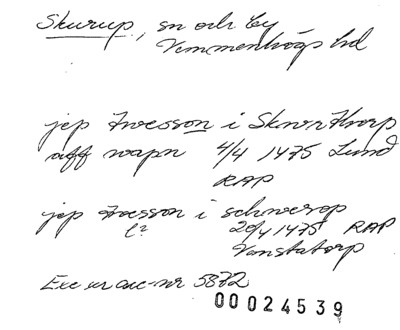 Skurup, sn och by
Vemmenhögs hd
jep Twesson i Skwrthorp
aff wapn 4/4 1475 Lund
RAP
jep Twesson i schwrop
20/4 1475 RAP
Vanstatorp
Exc ur acc-nr 5872
00024539